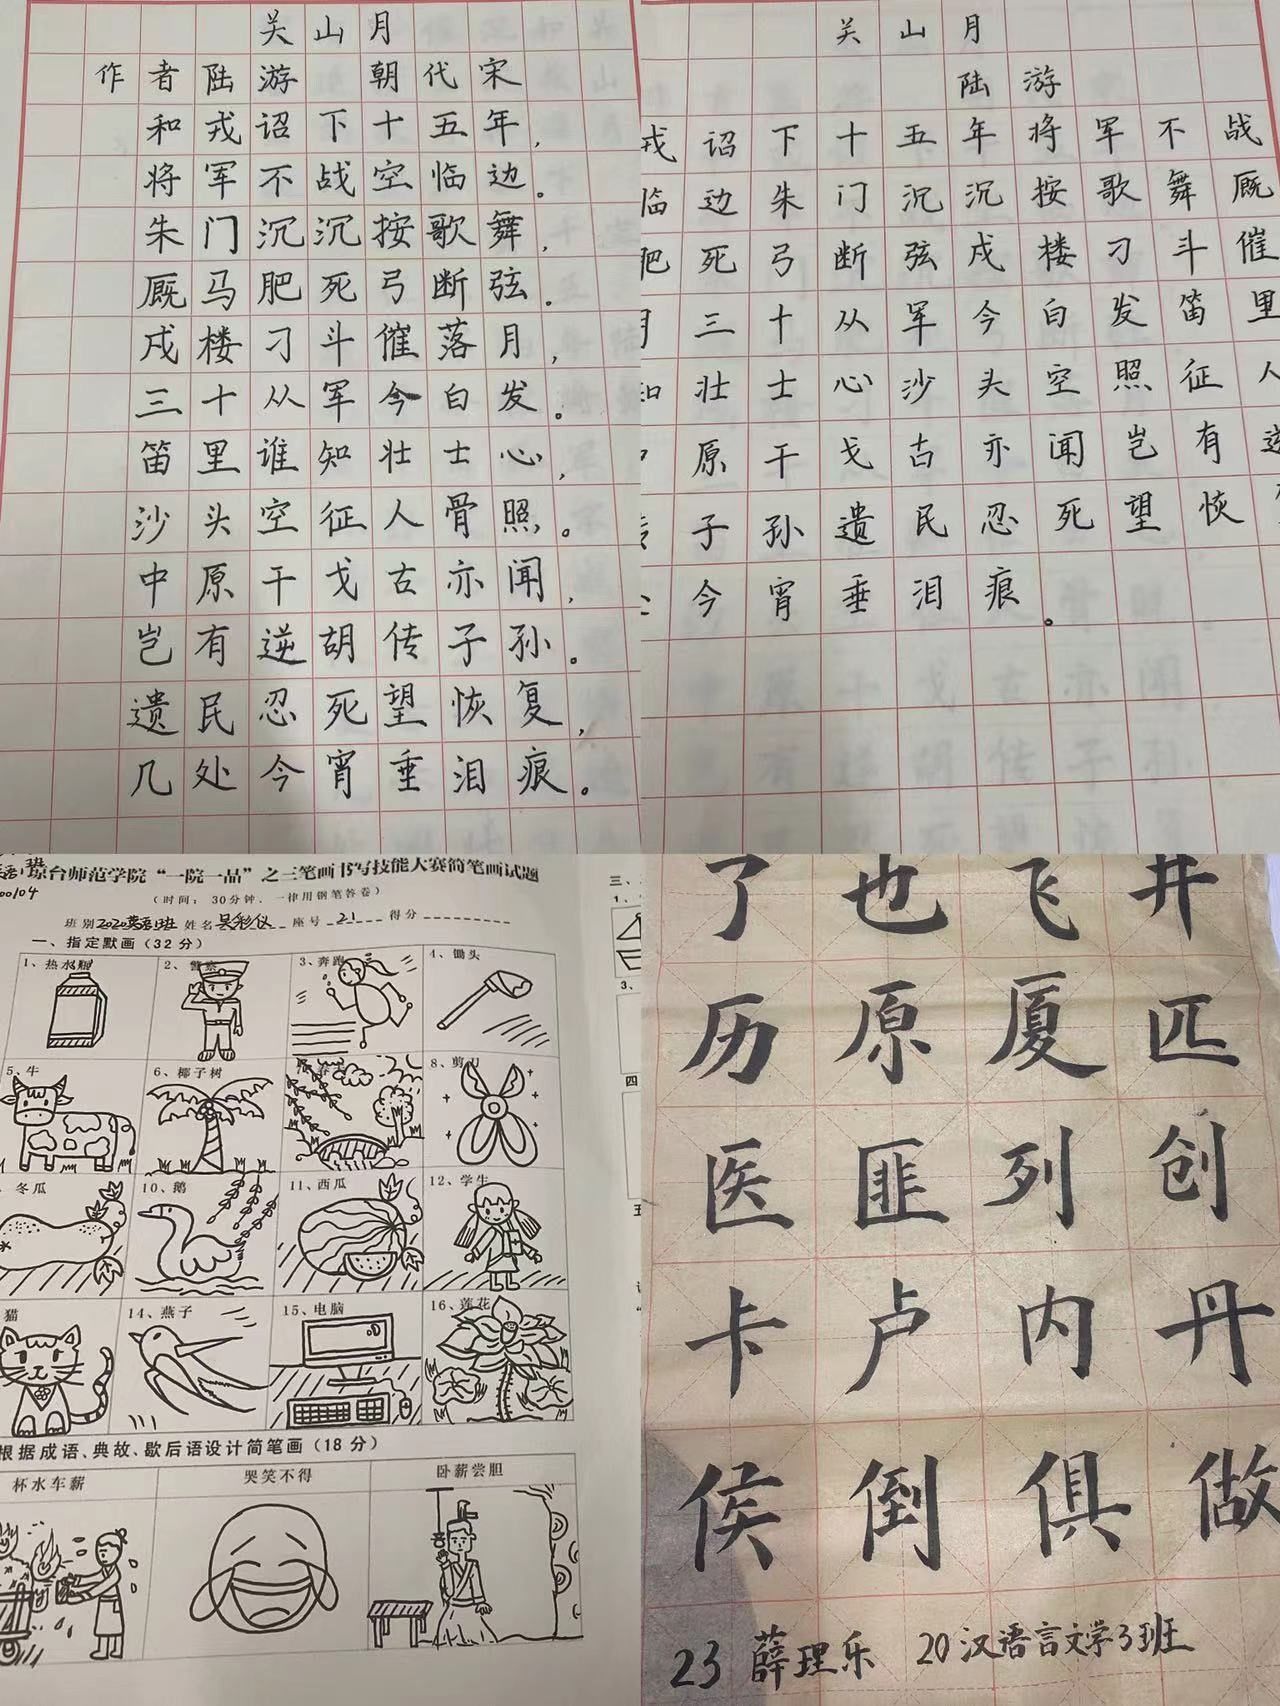 关山月
作者陆游 朝代宋
和戎诏下十五年，
将军不战空临边。
朱门沉沉按歌舞，
厩马肥死弓断弦。
戍楼刁斗催落月，
三十从军今白发。
笛里谁知壮士心，
沙头空征人骨照。
中原干戈古亦闻，
岂有逆胡传子孙。
遗民忍死望恢复，
几处今宵垂泪痕。
关山月
陆游
戎诏下十五年将军不战
临边朱门沉沉按歌舞厩
肥死弓断弦戍楼刁斗催
月三十从军今白发笛里
知壮士心沙头空照征人
中原干戈古亦闻岂有逆
传子孙遗民忍死望恢
处今宵垂泪痕。
琼台师范学院“一院一品”之三笔画书写技能大赛简笔画试题
（时间：30分钟，一律用钢笔答卷）
班别2020英语1班 姓名吴彩仪 座号21 得分
一、指定默画（32分）
1、热水瓶 2、警察 3、奔跑 4、锄头
5、牛 6、椰子树 7、春天 8、剪刀
冬瓜 10、鹅 11、西瓜 12、学生
猫 14、燕子 15、电脑 16、莲花
根据成语、典故、歇后语设计简笔画（18分）
杯水车薪 哭笑不得 卧薪尝胆
三、
1、
3、
四
五
了也飞井
历原厦匹
医匪列创
卡卢内丹
侯倒俱做
23 薛理乐 20汉语言文学3班